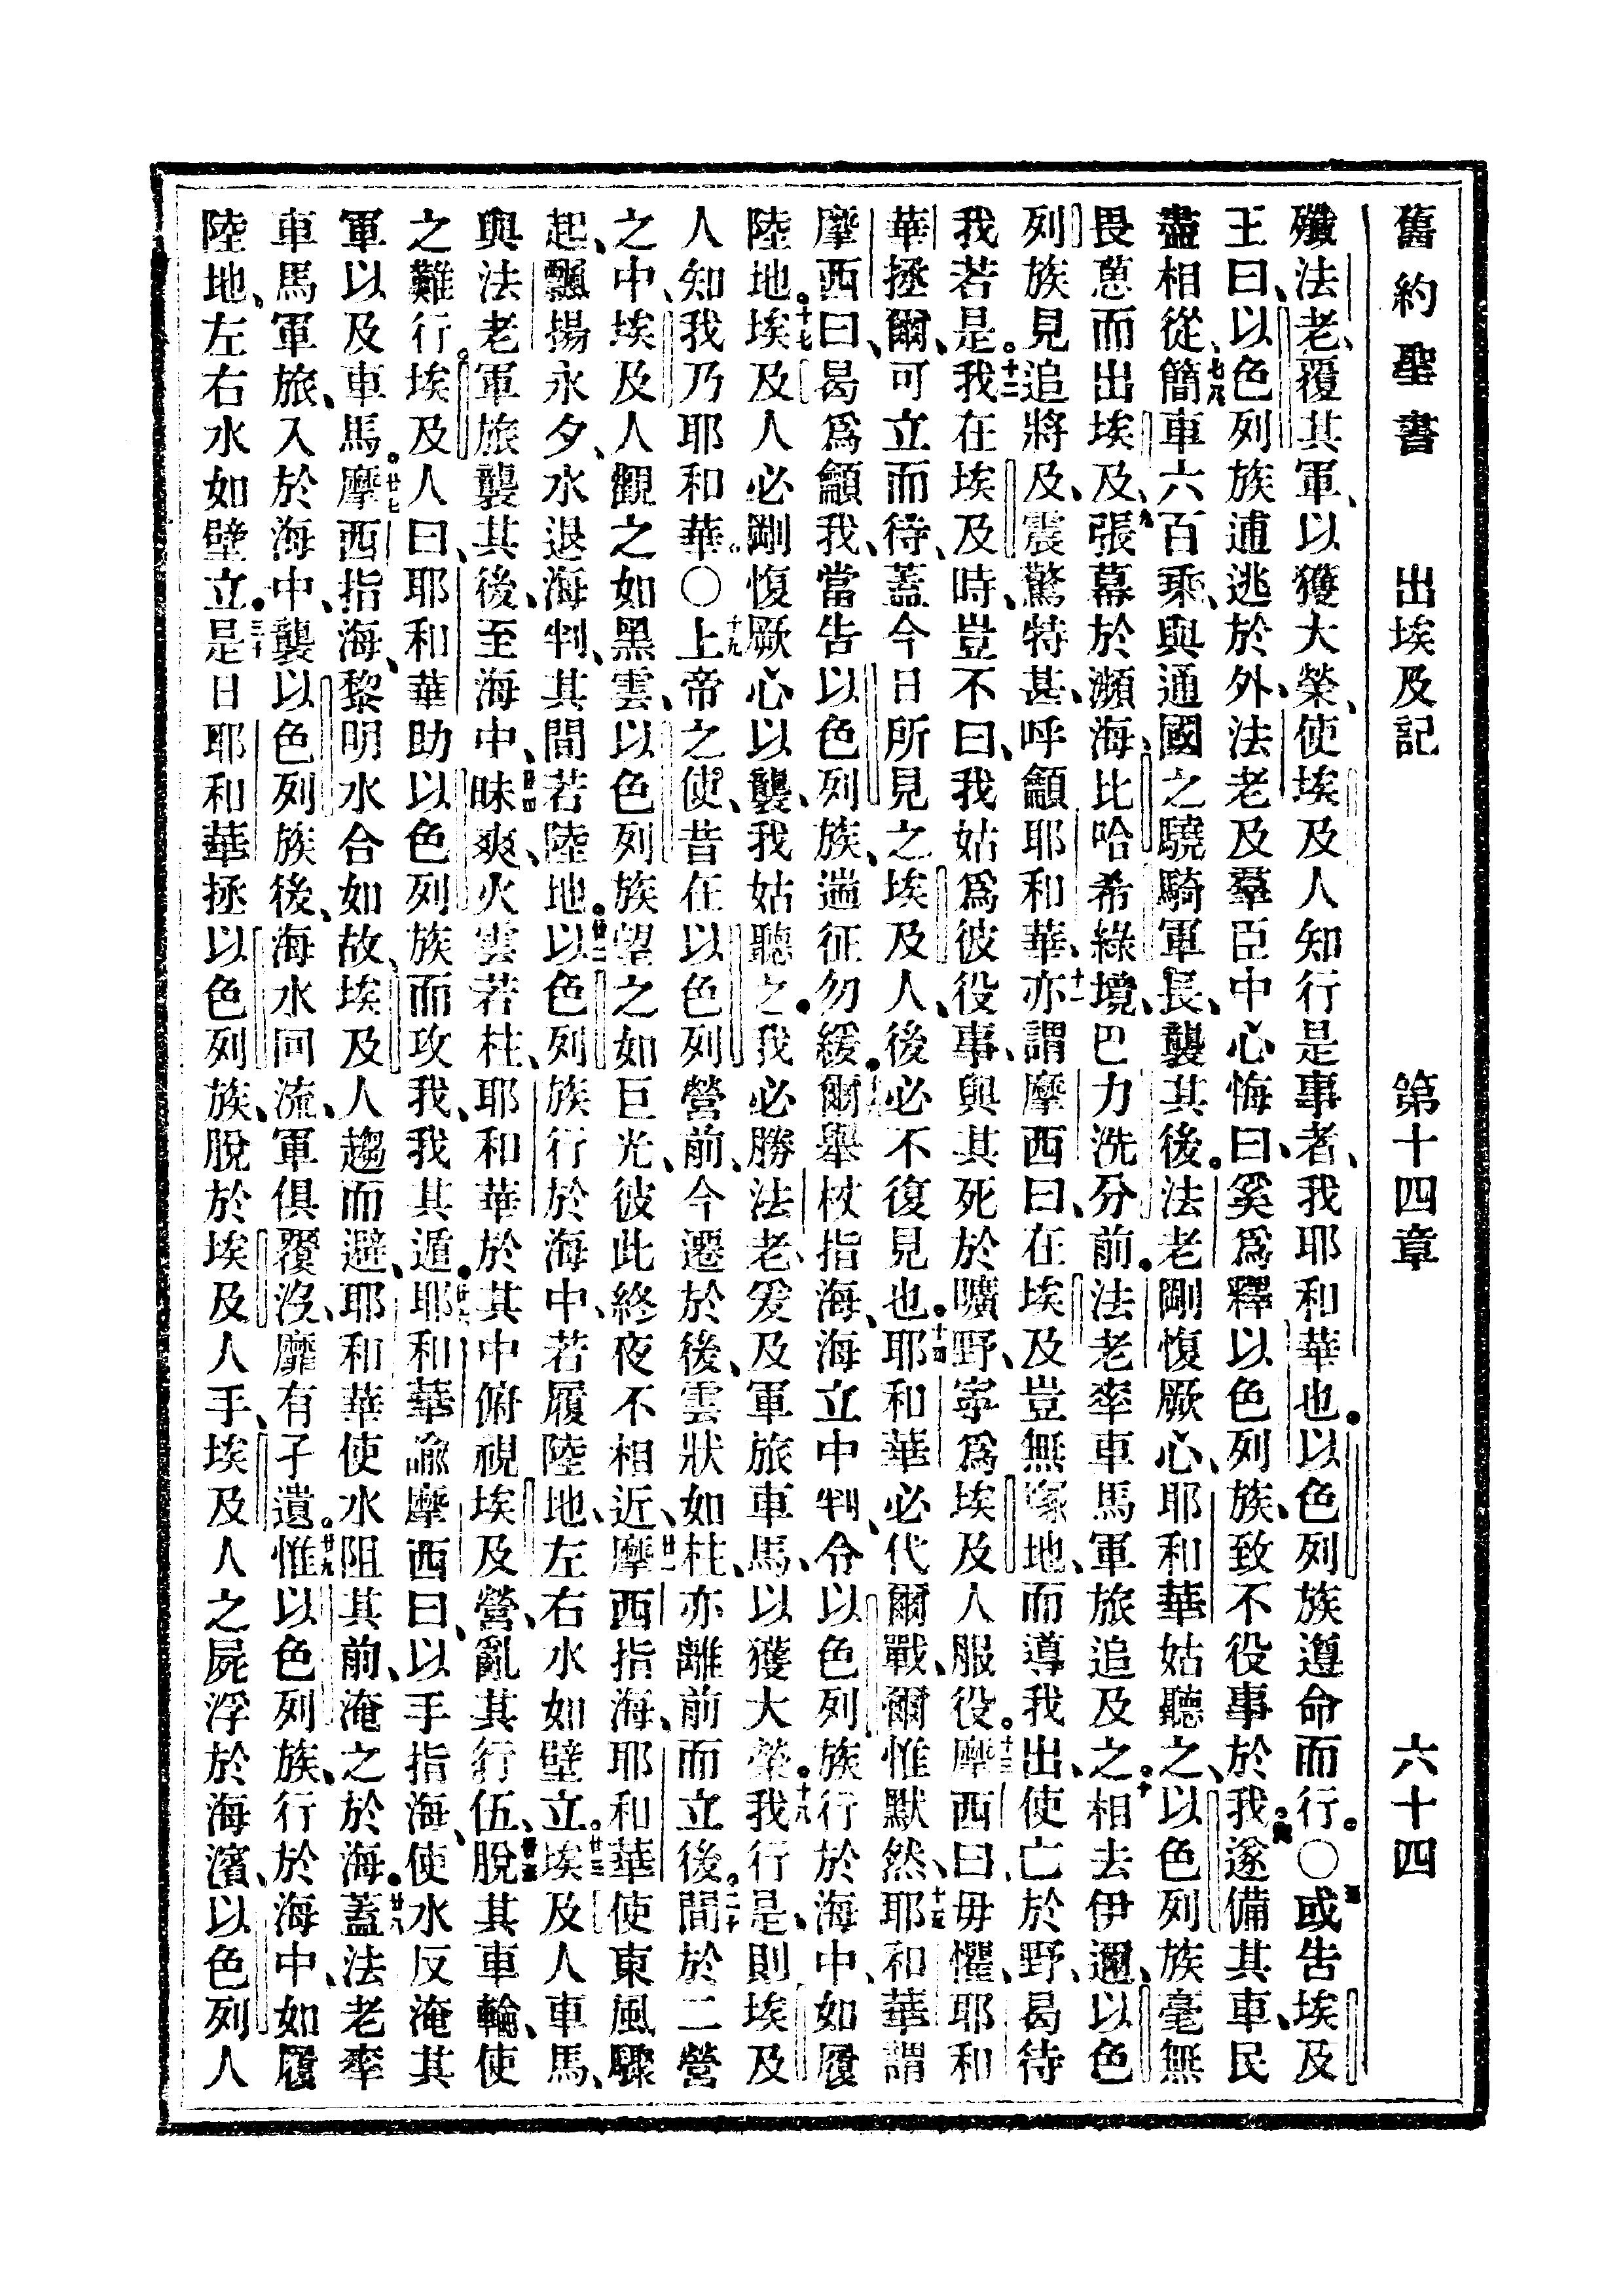 舊約聖書　出埃及記　第十四章　六十四
殲法老、覆其軍、以獲大榮、使埃及人知行是事者、我耶和華也。以色列族遵命而行。〇五或告埃及
王曰、以色列族逋逃於外、法老及羣臣中心悔曰、奚爲釋以色列族、致不役事於我。六遂備其車、民
盡相從、七八簡車六百乘、與通國之驍騎軍長、襲其後。法老剛愎厥心、耶和華姑聽之、以色列族毫無
畏葸而出埃及、九張幕於瀕海、比哈希綠境、巴力洗分前。法老率車馬軍旅追及之。十相去伊邇、以色
列族見追將及、震驚特甚、呼籲耶和華、十一亦謂摩西曰、在埃及豈無塚地、而導我出、使亡於野、曷待
我若是。十二我在埃及時、豈不曰、我姑爲彼役事、與其死於曠野、寧爲埃及人服役。十三摩西曰、毋懼、耶和
華拯爾、可立而待、蓋今日所見之埃及人、後必不復見也。十四耶和華必代爾戰、爾惟默然、十五耶和華謂
摩西曰、曷爲籲我、當告以色列族、遄征勿緩。十六爾舉杖指海、海立中判、令以色列族行於海中、如履
陸地。十七埃及人必剛愎厥心以襲、我姑聽之。我必勝法老、爰及軍旅車馬、以獲大榮。十八我行是、則埃及
人知我乃耶和華。〇十九上帝之使、昔在以色列營前、今遷於後、雲狀如柱、亦離前而立後。二十間於二營
之中、埃及人觀之如黑雲、以色列族望之如巨光、彼此終夜不相近、廿一摩西指海、耶和華使東風驟
起、飄揚永夕、水退海判、其間若陸地。廿二以色列族行於海中、若履陸地、左右水如壁立。廿三埃及人車馬、
與法老軍旅襲其後、至海中、廿四昧爽、火雲若柱、耶和華於其中俯視埃及營、亂其行伍、廿五脫其車輪、使
之難行。埃及人曰、耶和華助以色列族、而攻我、我其遁。廿六耶和華諭摩西曰、以手指海、使水反淹其
軍以及車馬。廿七摩西指海、黎明水合如故、埃及人趨而避、耶和華使水阻其前、淹之於海。廿八蓋法老率
車馬軍旅、入於海中、襲以色列族後、海水回流、軍俱覆沒、靡有孑遺。廿九惟以色列族、行於海中、如履
陸地、左右水如壁立。三十是日耶和華拯以色列族、脫於埃及人手、埃及人之屍浮於海濱、以色列人